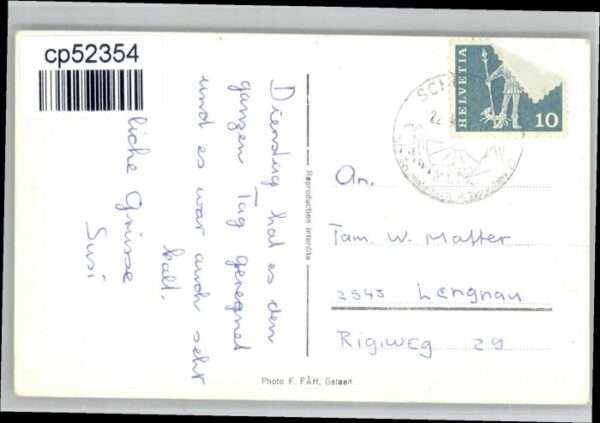 cp52354
Dienstag hat es den
ganzen Tag geregnet
und es war auch sehr
kalt.
liche Grüsse
Susi
Reproduction interdite
Photo F. FÄH, Gstaad
HELVETIA
10
An.
Fam. W. Matter
2543 Lengnau
Rigiweg 29